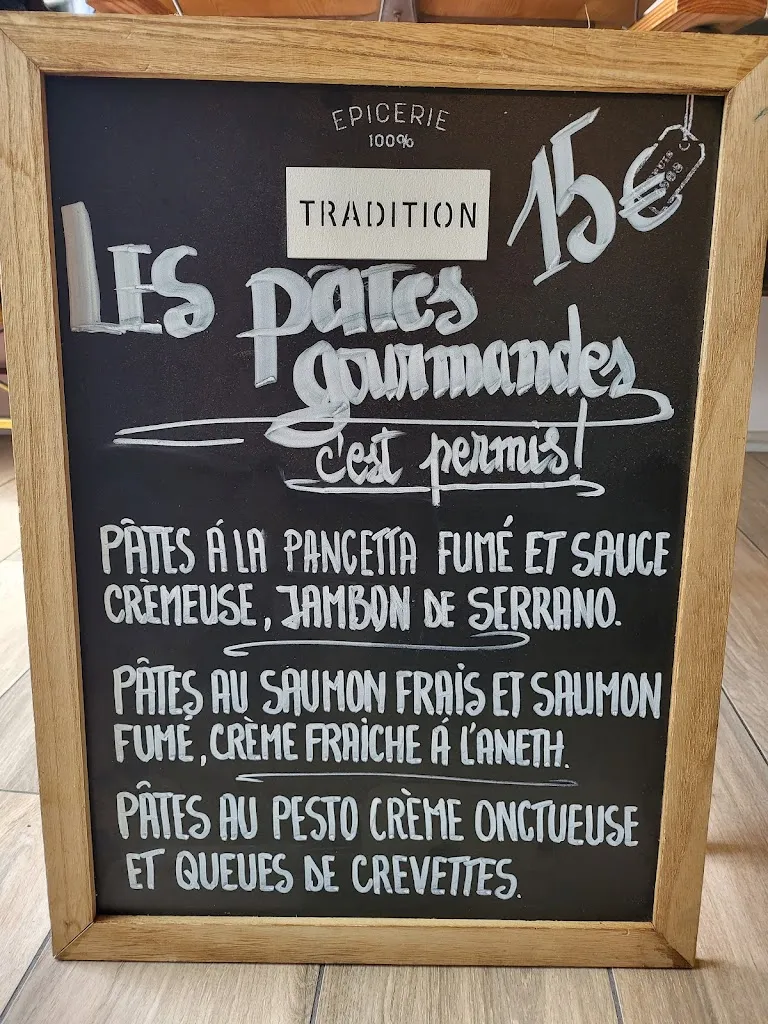 EPICERIE
100%
TRADITION
15€
LES pâtes
gourmandes
c'est permis!
PÂTES Á LA PANCETTA FUMÉ ET SAUCE
CRÈMEUSE, JAMBON DE SERRANO.
PÂTES AU SAUMON FRAIS ET SAUMON
FUMÉ, CRÈME FRAICHE Á L'ANETH.
PÂTES AU PESTO CRÈME ONCTUEUSE
ET QUEUES DE CREVETTES.